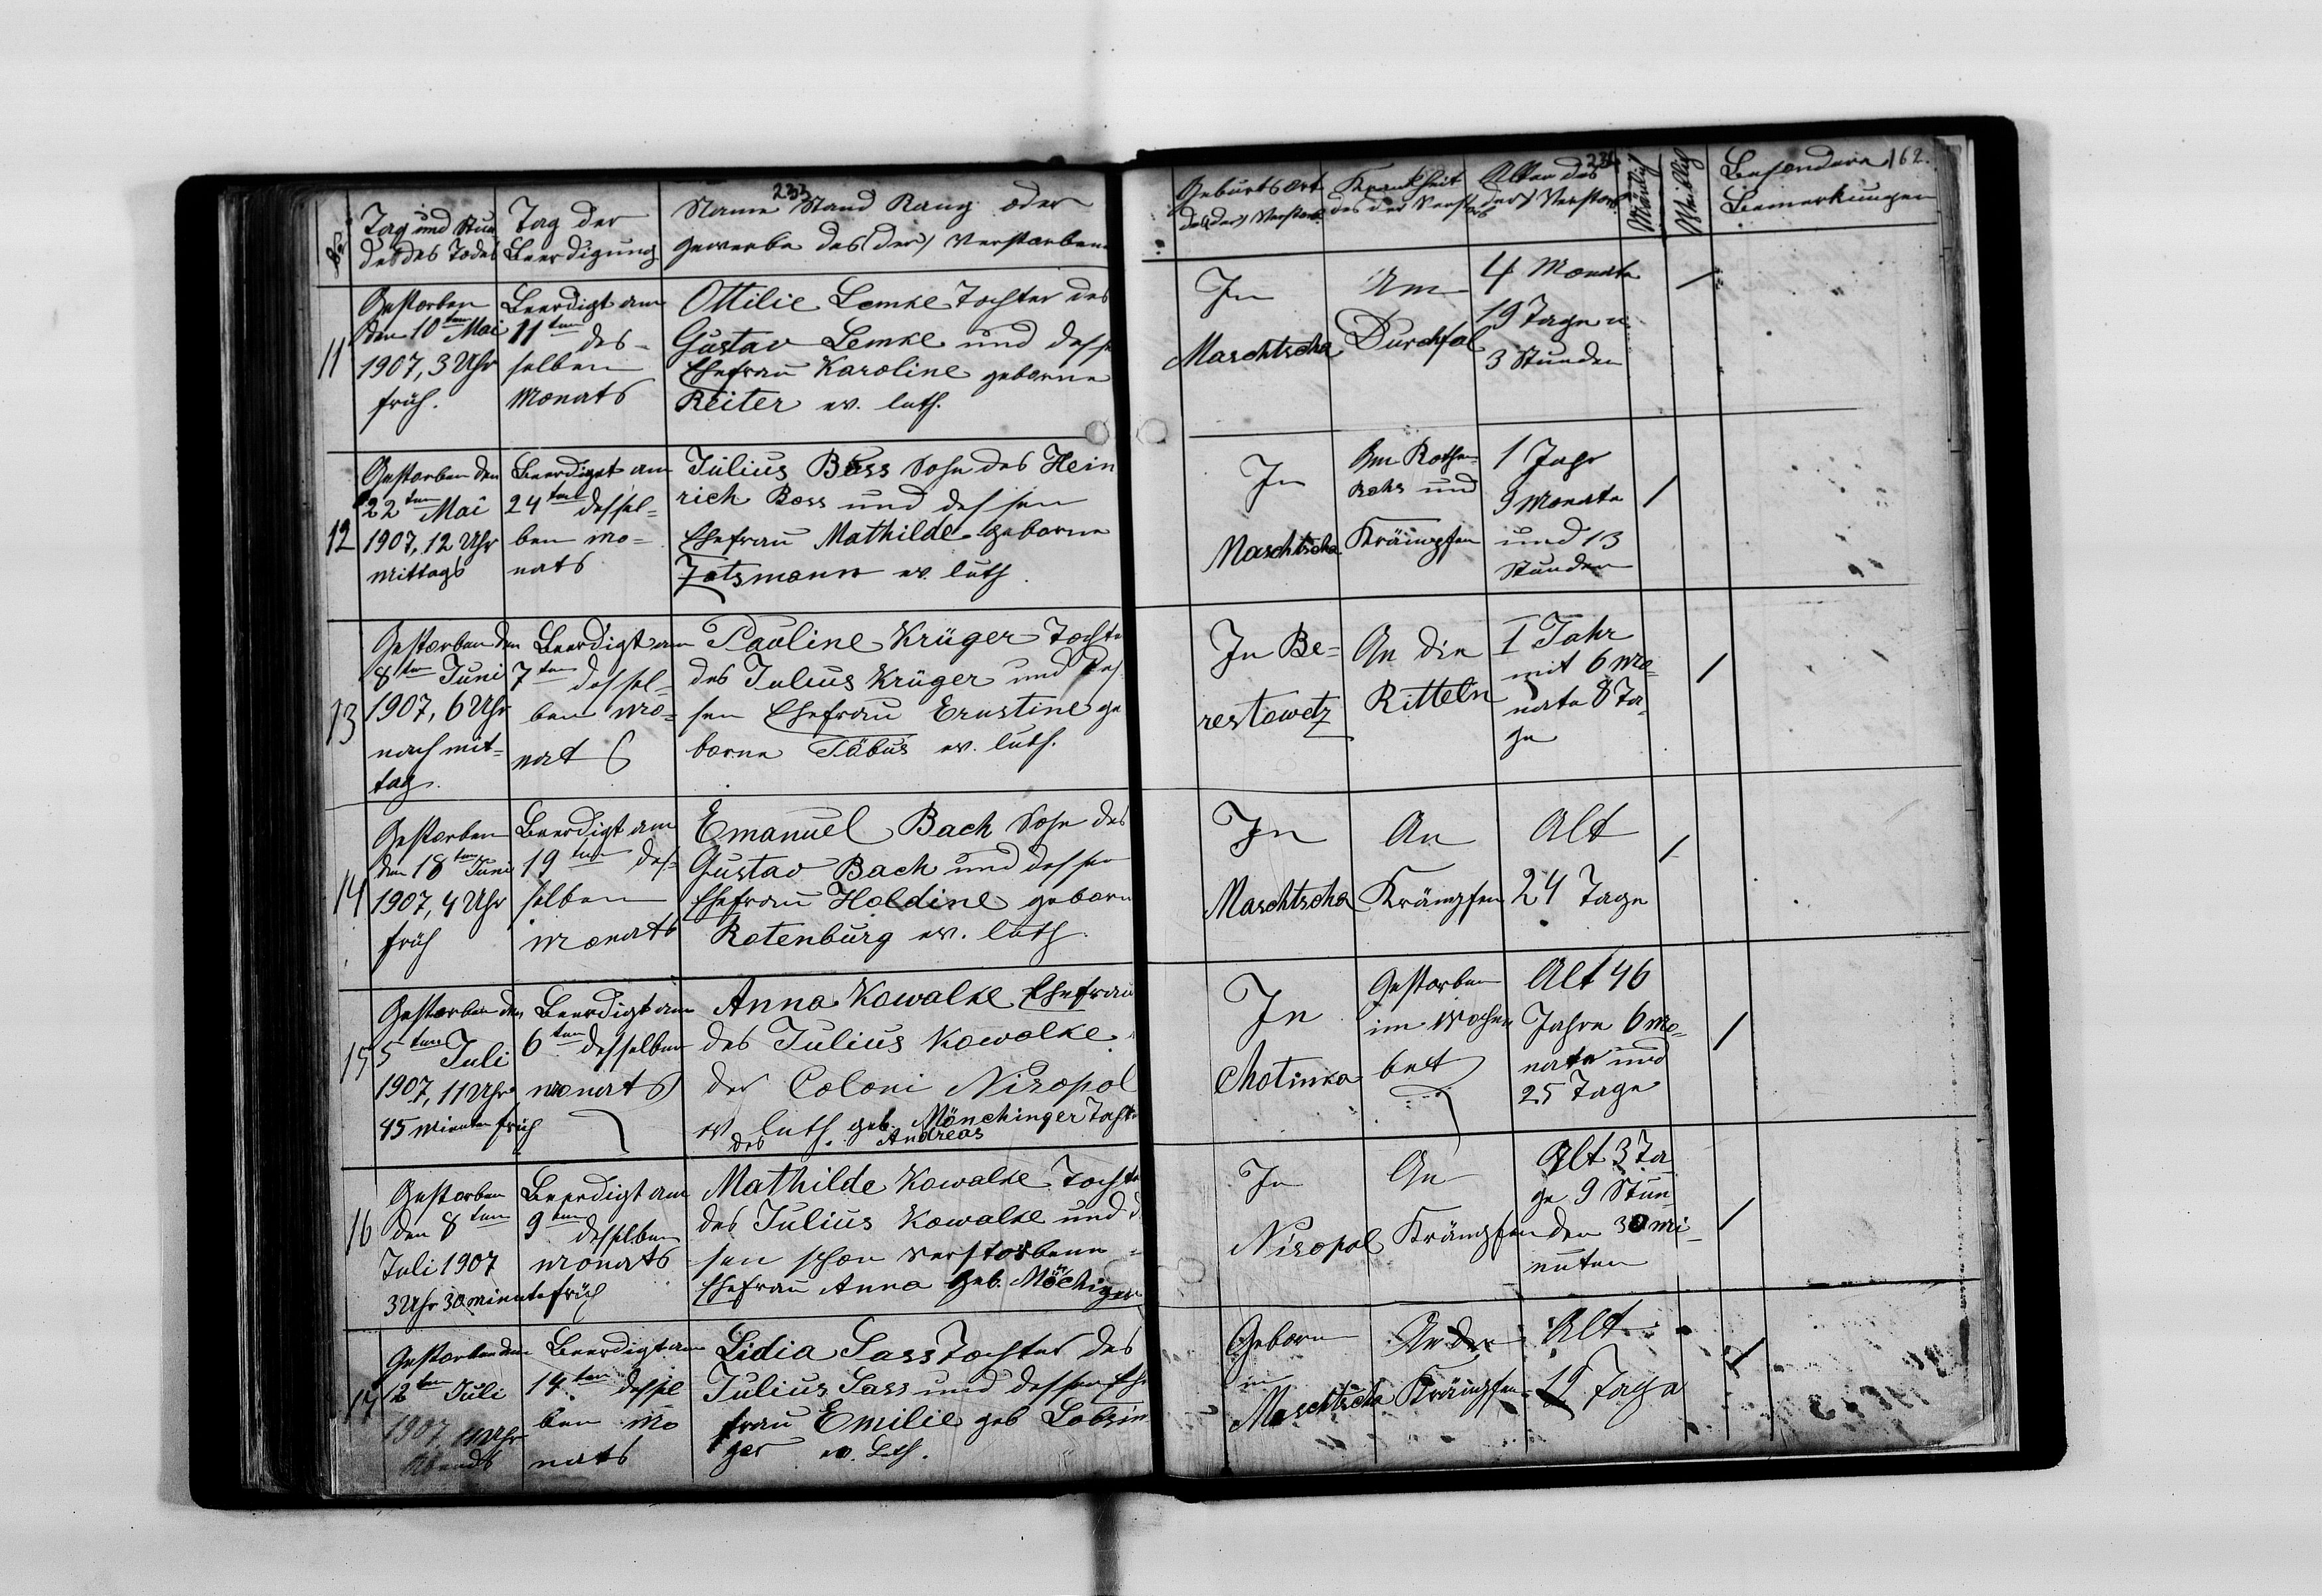 233
Nr.
Tag und Stun
de des Todes
Tag der
Beerdigung
Name Stand Rang oder
Gewerbe des (der) Verstorbene
11
Gestorben
den 10ten Mai
1907, 3 Uhr
früh.
Beerdigt am
11ten des-
selben
Monats
Ottilie Lemke Tochter des
Gustav Lemke und desse
Ehefrau Karoline geborne
Reiter ev. luth.
12
Gestorben den
22ten Mai
1907, 12 Uhr
Mittags
Beerdiget am
24ten dessel=
ben Mo=
nats
Julius Boss Sohn des Hein
rich Boss und dessen
Ehefrau Mathilde geborne
Zotsmann ev. luth.
13
Gestorben den
8ten Juni
1907, 6 Uhr
nachmit=
tag.
Beerdigt am
7ten dessel=
ben Mo=
nats
Pauline Krüger Tochte
des Julius Krüger und des
sen Ehefrau Ernstine ge
borne Töbus ev. luth.
14
Gestorben
den 18ten Juni
1907, 4 Uhr
früh
Beerdigt am
19ten des=
selben
Monats
Emanuel Bach Sohn des
Gustav Bach und dessen
Ehefrau Holdine geborn
Rotenburg ev. luth.
15
Gestorben den
5ten Juli
1907, 11 Uhr
45 Minuten früh
Beerdigt am
6ten desselben
Monats
Anna Kowalke Ehefrau
des Julius Kowalke
der Coloni Niropol
ev luth. geb. Mönchinger Tocht
des Andreas
16
Gestorben
den 8ten
Juli 1907
3 Uhr 30 Minute früh
Beerdigt am
9ten desselben
Monats
Mathilde Kowalke Tochte
des Julius Kowalke und d
sen schon verstorbenen
Ehefrau Anna geb. Möchiger
17
Gestorben den
12ten Juli
1907 11 Uhr
Abends
Beerdigt am
14ten dessel
ben Mo
nats
Lidia Sass Tochter des
Julius Sass und dessen Ehe
frau Emilie geb Lobsin
ger ev. Luth.
234
162.
Geburtsort
des (der) Verstorb.
Krankheit
des der Verstorb
Alter des
(der) Verstorb.
Mänlig
Weiblig
Besondere
Bemerkungen
In
Maschtscha
Am
Durchfal
4 Monate
19 Tage u.
3 Stunden
/
In
Maschtscha
Am Rothen
und
Krämpfen
1 Jahr
9 Monate
und 13
Stunden
/
In Be=
restowetz
An die
Ritteln
1 Jahr
mit 6 Mo=
nate 8 Ta
ge
/
In
Maschtscha
An
Krämpfen
Alt
24 Tage
/
In
Chotinka
Gestorben
im Wochen
bet
Alt 46
Jahre 6 Mo=
nate und
25 Tage
/
In
Niropol
An
Krämpfen
Alt 3 Ta
ge 9 Stun
den 30 Mi
nuten
/
Geborn
in
Maschtscha
An den
Krämpfen
Alt
19 Tage
/